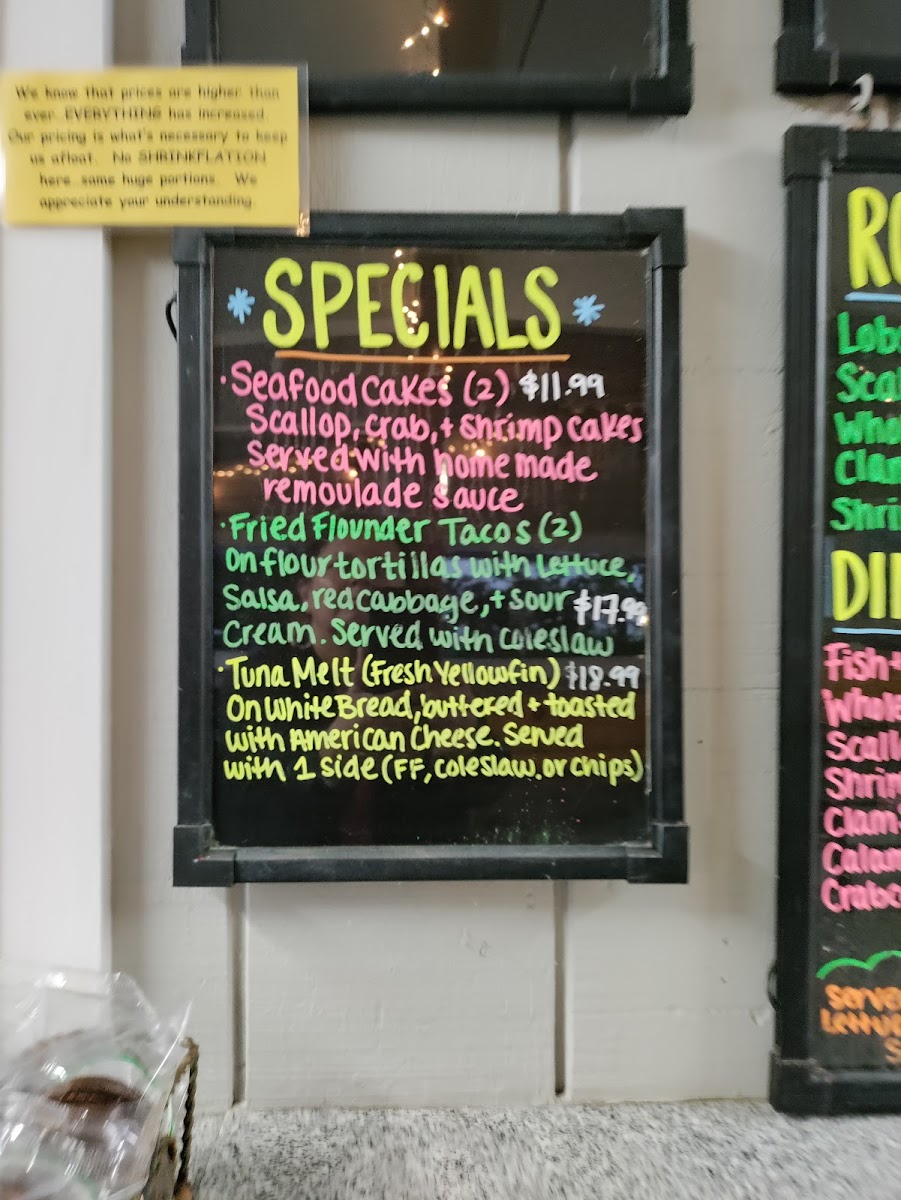 We know that prices are higher than
ever. EVERYTHING has increased.
Our pricing is what's necessary to keep
us afloat. No SHRINKFLATION
here..same huge portions. We
appreciate your understanding.
SPECIALS
· Seafood Cakes (2) $11.99
Scallop, crab, + shrimp cakes
Served with homemade
remoulade sauce
· Fried Flounder Tacos (2)
On flour tortillas with lettuce,
Salsa, red cabbage, + sour $17.99
Cream. Served with coleslaw
· Tuna Melt (Fresh Yellowfin) $18.99
On White Bread, buttered + toasted
with American Cheese. Served
with 1 side (FF, coleslaw. or chips)
RO
Lob
Scal
Who
Clam
Shri
DI
Fish +
Whole
Scall
Shrim
Clam
Calam
Crabc
Serve
Lettuc
S